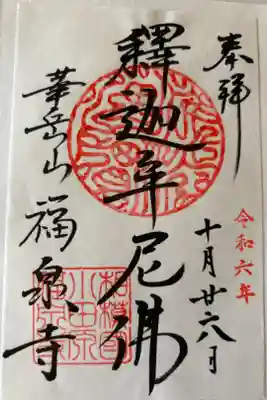 奉拝
令和六年
十月廿六日
釋迦牟尼佛
華岳山
福泉寺
相模国
小田原